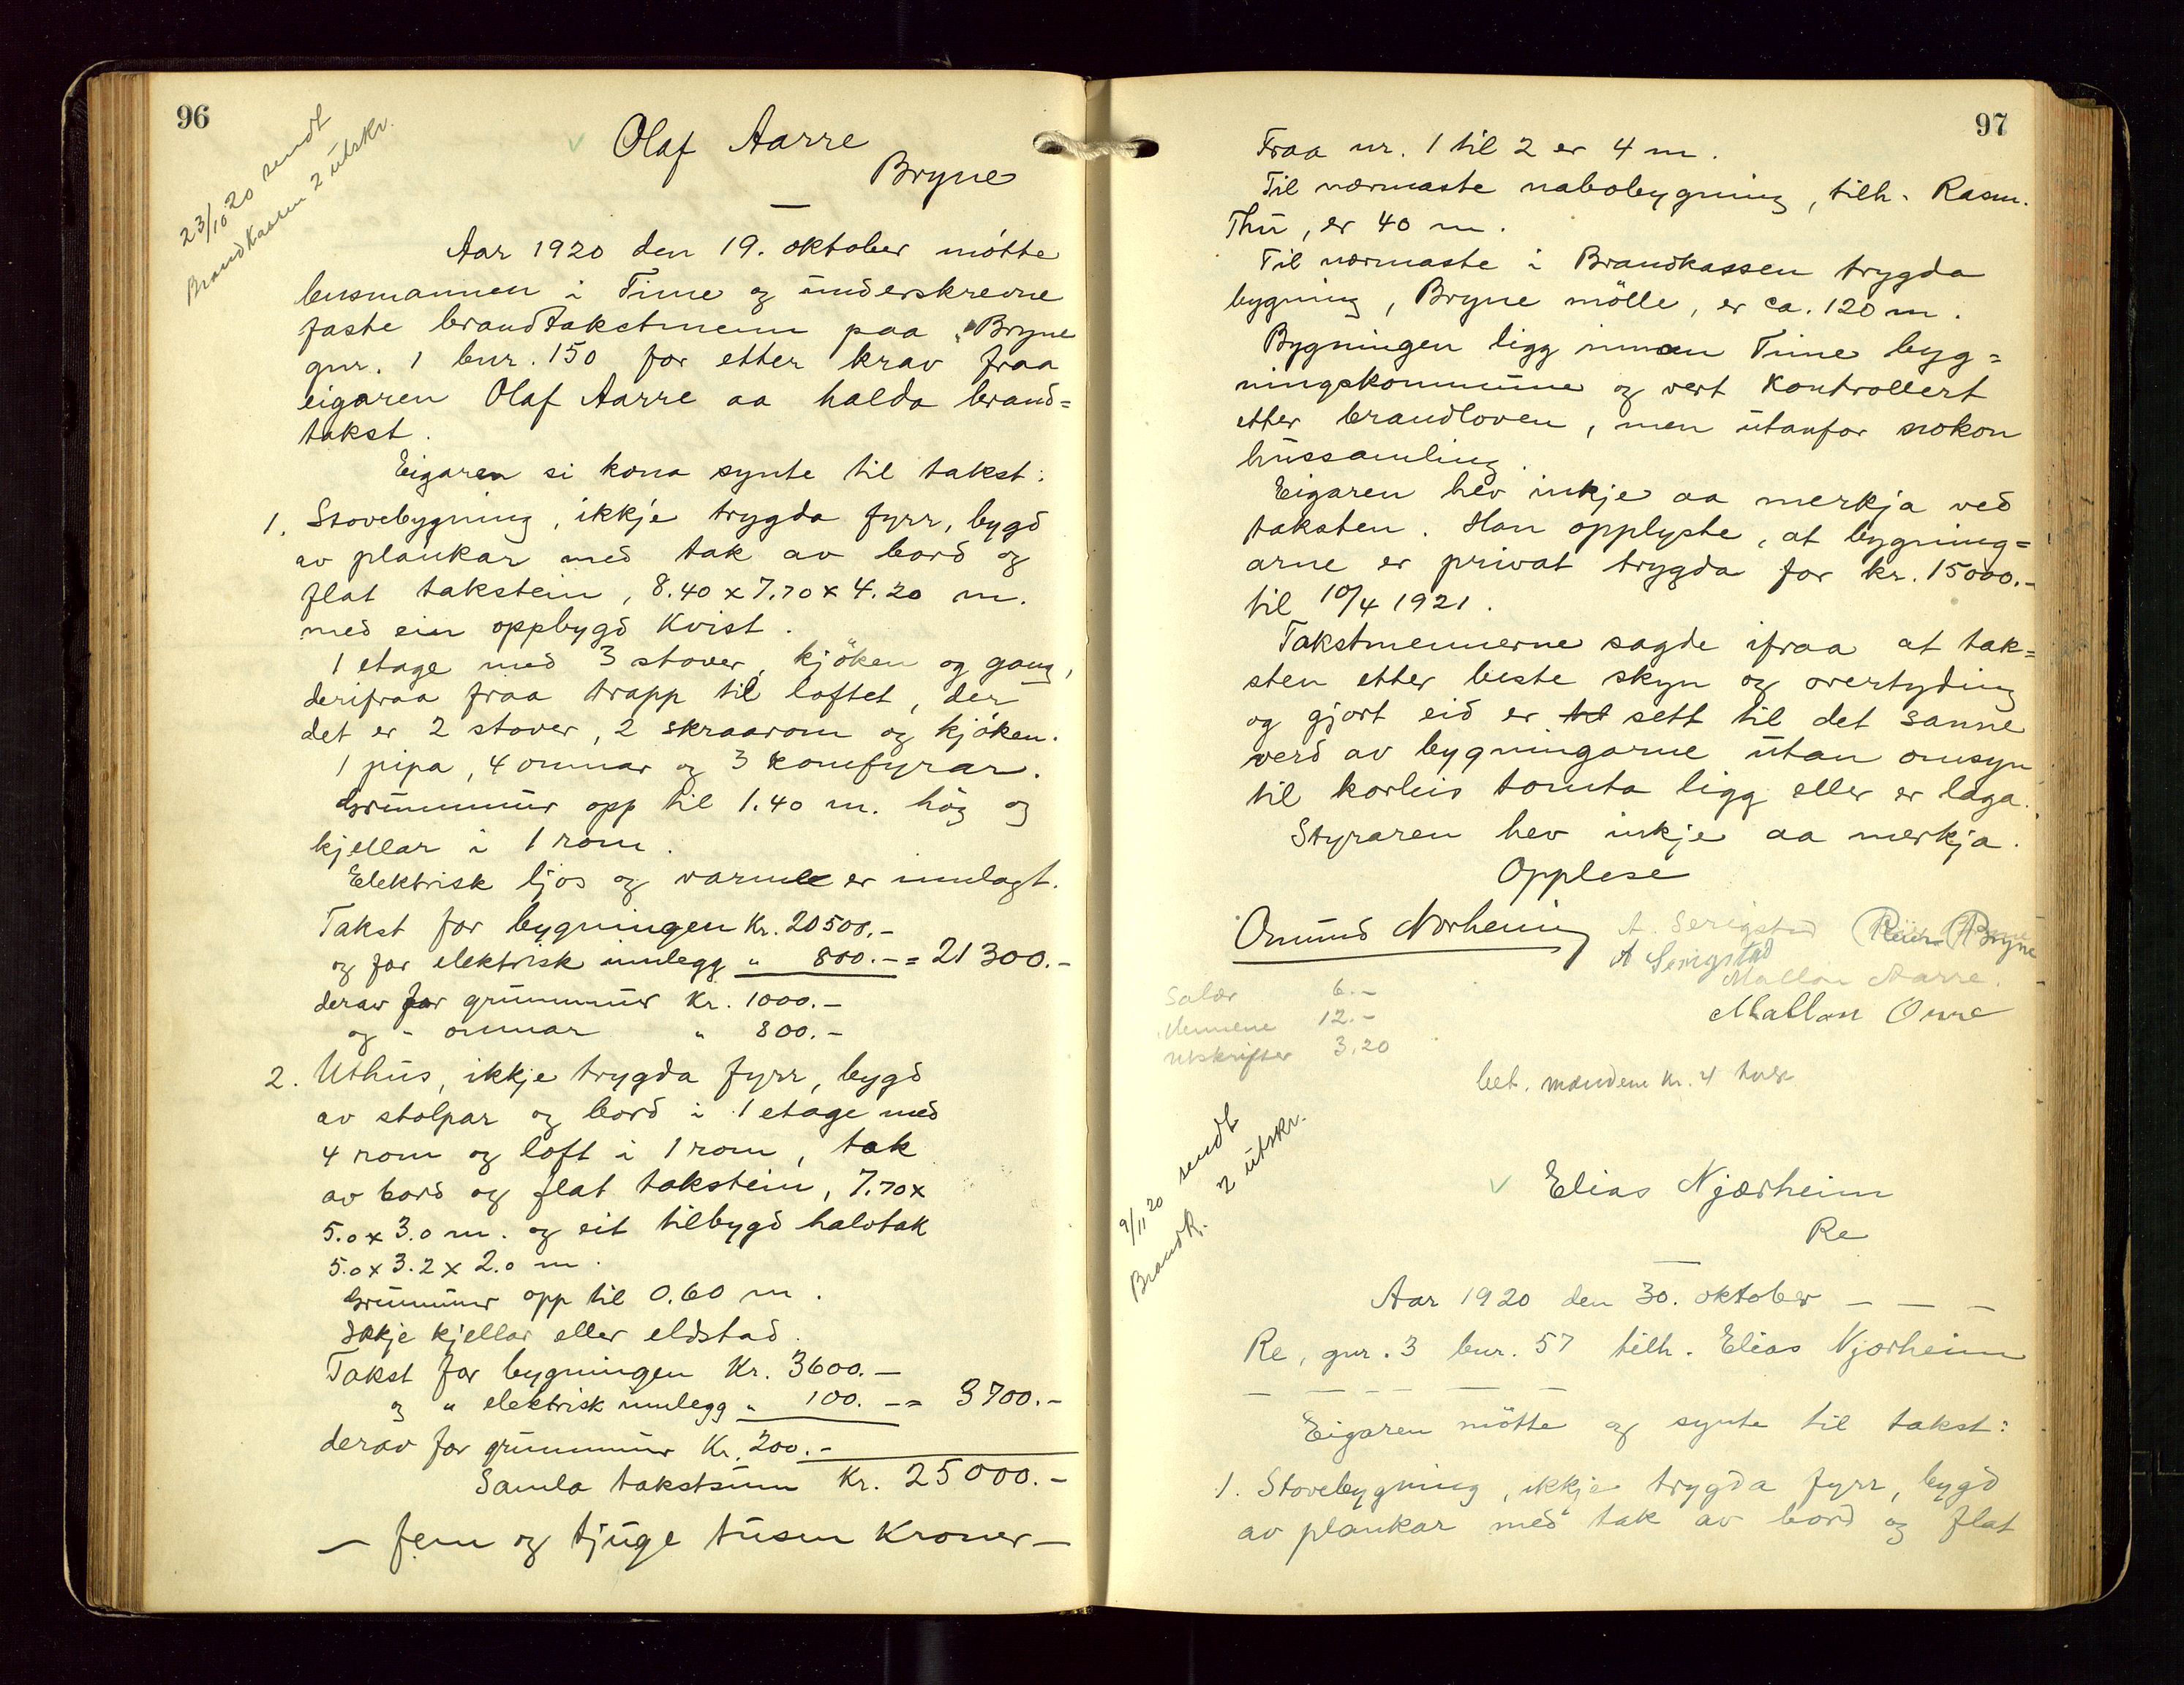 96
23/10 20 sendt
Brandkassen 2 utskr.
Olaf Aarre
Bryne
Aar 1920 den 19. oktober mötte
lensmannen i Time og underskrevne
faste brandtakstmenn paa Bryne
gnr. 1 bnr. 150 for etter krav fraa
eigaren Olaf Aarre aa halda brand=
takst.
Eigaren si kona synte til takst:
1. Stovebygning, ikkje trygda fyrr, bygd
av plankar med tak av bord og
flat takstein, 8.40 x 7.70 x 4.20 m.
med ein oppbygd Kvist.
1 etage med 3 stover, kjöken og gang,
derifraa fraa trapp til loftet, der
det er 2 stover, 2 skraarom og kjöken.
1 pipa, 4 omnar og 3 komfyrar.
Grunnmur opp til 1.40 m. hög og
kjellar i 1 rom.
Elektrisk ljos og varme er innlagt.
Takst for bygningen Kr. 20500.-
og for elektrisk innlegg " 800.- = 21300.-
derav for grunnmur Kr. 1000.-
og " omnar " 800.-
2. Uthus, ikkje trygda fyrr, bygd
av stolpar og bord i 1 etage med
4 rom og loft i 1 rom, tak
av bord og flat takstein, 7.70 x
5.0 x 3.0 m. og eit tilbygd halvtak
5.0 x 3.2 x 2.0 m.
Grunnmur opp til 0.60 m.
Ikkje kjellar eller eldstad.
Takst for bygningen Kr. 3600.-
og " elektrisk innlegg " 100.- = 3700.-
derav for grunnmur Kr. 200.-
Samla takstsum Kr. 25000.-
- fem og tjuge tusen Kroner -
97
Fraa nr. 1 til 2 er 4 m.
Til nærmaste nabobygning, tilh. Rasm.
Thu, er 40 m.
Til nærmaste i Brandkassen trygda
bygning, Bryne mölle, er ca. 120 m.
Bygningen ligg innan Time byg=
ningskommune og vert Kontrollert
etter brandloven, men utanfor nokon
hussamling.
Eigaren hev inkje aa merkja ved
taksten. Han opplyste, at bygning=
arne er privat trygda for kr. 15000.-
til 10/4 1921.
Takstmennerne sagde ifraa at tak=
sten etter beste skyn og overtyding
og gjort eid er til sett til det sanne
verd av bygningarne utan omsyn
til korleis tomta ligg eller er laga.
Styraren hev inkje aa merkja.
Opplese
Omund Norheim A. Serigstad Reier Bryne
A Serigstad
Mallon Aarre.
Mallon Orre
Salær 6.-
Mennene 12.-
Utskrifter 3.20
bet. mændene kr. 4 hver
9/11 20 sendt
Brandk. 2 utskr.
Elias Njærheim
Re
Aar 1920 den 30. oktober - - -
Re, gnr. 3 bnr. 57 tilh. Elias Njærheim
- - - - - -
Eigaren mötte og synte til takst:
1. Stovebygning, ikkje trygda fyrr, bygd
av plankar med tak av bord og flat